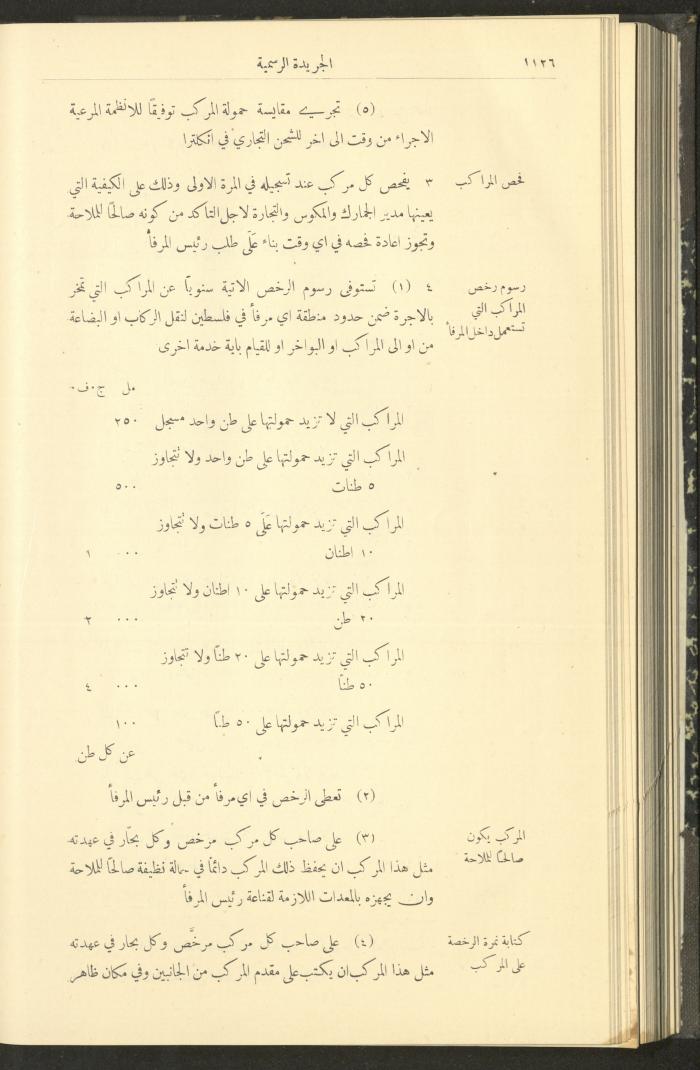 ١١٢٦
الجريدة الرسمية
(٥) تجرے مقايسة حمولة المركب توفيقًا للانظمة المرعية
الاجراء من وقت الى اخر للشحن التجاري في انكلترا
فحص المراكب
٣ يفحص كل مركب عند تسجيله في المرة الاولى وذلك على الكيفية التي
يعينها مدير الجمارك والمكوس والتجارة لاجل التاكد من كونه صالحًا للملاحة
وتجوز اعادة فحصه في اي وقت بناء عَلَى طلب رئيس المرفأ
رسوم رخص
المراكب التي
تستعمل داخل المرفأ
٤ (١) تستوفى رسوم الرخص الاتية سنويًا عن المراكب التي تمخر
بالاجرة ضمن حدود منطقة اي مرفأ في فلسطين لنقل الركاب او البضاعة
من او الى المراكب او البواخر او للقيام باية خدمة اخرى
مل ج.ف.
المراكب التي لا تزيد حمولتها على طن واحد مسجل ٢٥٠
المراكب التي تزيد حمولتها على طن واحد ولا تتجاوز
٥ طنات ٥٠٠
المراكب التي تزيد حمولتها عَلَى ٥ طنات ولا تتجاوز
١٠ اطنان ٠٠٠ ١
المراكب التي تزيد حمولتها على ١٠ اطنان ولا تتجاوز
٢٠ طن ٠٠٠ ٢
المراكب التي تزيد حمولتها على ٢٠ طنًا ولا تتجاوز
٥٠ طنًا ٠٠٠ ٤
المراكب التي تزيد حمولتها على ٥٠ طنًا ١٠٠
عن كل طن
(٢) تعطى الرخص في اي مرفأ من قبل رئيس المرفأ
المركب يكون
صالحًا للملاحة
(٣) على صاحب كل مركب مرخص وكل بحّار في عهدته
مثل هذا المركب ان يحفظ ذلك المركب دائمًا في حالة نظيفة صالحًا للملاحة
وان يجهزه بالمعدات اللازمة لقناعة رئيس المرفأ
كتابة نمرة الرخصة
على المركب
(٤) على صاحب كل مركب مرخَّص وكل بحار في عهدته
مثل هذا المركب ان يكتب على مقدم المركب من الجانبين وفي مكان ظاهر